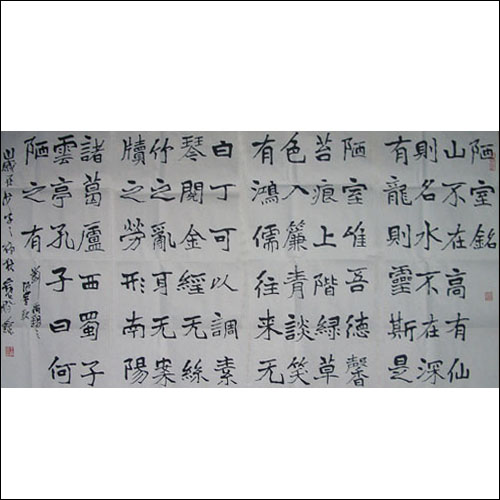 陋室銘
山不在高有仙
則名水不在深
有龍則靈斯是
陋室惟吾德馨
苔痕上階綠草
色入簾青談笑
有鴻儒往來无
白丁可以調素
琴閱金經无絲
竹之亂耳无案
牘之勞形南陽
諸葛廬西蜀子
雲亭孔子曰何
陋之有